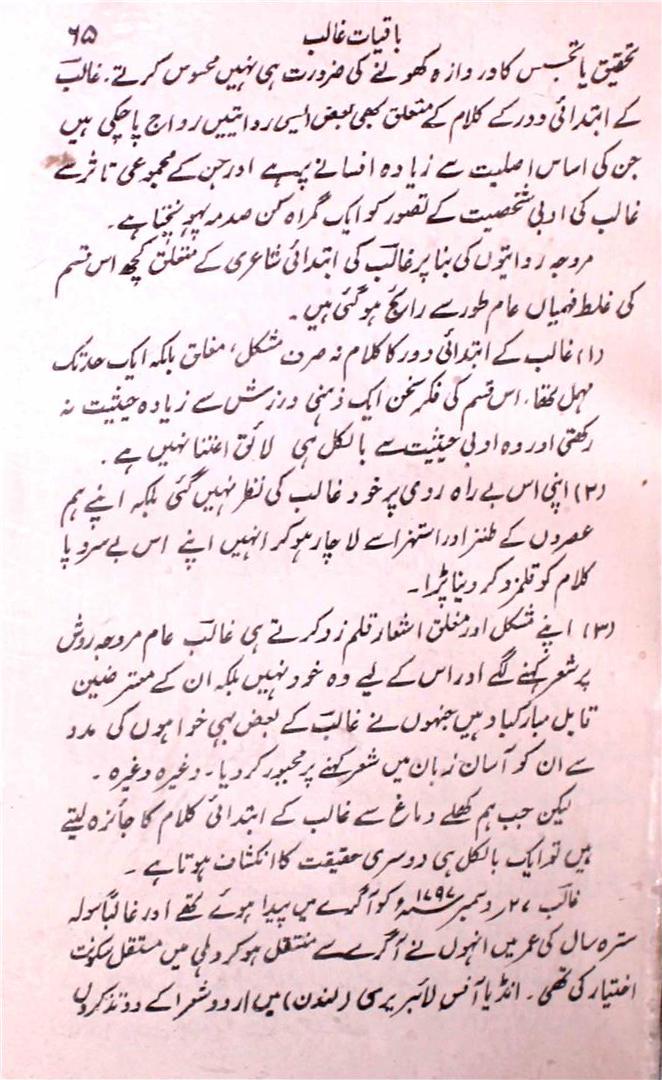 باقیات غالب
۶۵
تحقیق یا تجسس کا دروازہ کھولنے کی ضرورت ہی نہیں محسوس کرتے۔ غالبؔ
کے ابتدائی دور کے کلام کے متعلق بھی بعض ایسی روایتیں رواج پا چکی ہیں
جن کی اساس اصلیت سے زیادہ افسانے پر ہے اور جن کے مجموعی تاثر سے
غالب کی ادبی شخصیت کے تصور کو ایک گمراہ کن صدمہ پہونچتا ہے۔
مروجہ روایتوں کی بنا پر غالبؔ کی ابتدائی شاعری کے متعلق کچھ اس قسم
کی غلط فہمیاں عام طور سے رائج ہو گئی ہیں۔
(۱) غالب کے ابتدائی دور کا کلام نہ صرف مشکل، مغلق بلکہ ایک حد تک
مہمل تھا۔ اس قسم کی فکر سخن ایک ذہنی ورزش سے زیادہ حیثیت نہ
رکھتی اور وہ ادبی حیثیت سے بالکل ہی لائق اعتنا نہیں ہے۔
(۲) اپنی اس بے راہ روی پر خود غالب کی نظر نہیں گئی بلکہ اپنے ہم
عصروں کے طنز اور استہزا سے لاچار ہو کر انہیں اپنے اس بے سر و پا
کلام کو قلمزد کر دینا پڑا۔
(۳) اپنے مشکل اور مغلق اشعار قلم زد کرتے ہی غالبؔ عام مروجہ روش
پر شعر کہنے لگے اور اس کے لیے وہ خود نہیں بلکہ ان کے معترضین
قابل مبارکباد ہیں جنہوں نے غالبؔ کے بعض بہی خواہوں کی مدد
سے ان کو آسان زبان میں شعر کہنے پر مجبور کر دیا۔ وغیرہ وغیرہ۔
لیکن جب ہم کھلے دماغ سے غالب کے ابتدائی کلام کا جائزہ لیتے
ہیں تو ایک بالکل ہی دوسری حقیقت کا انکشاف ہوتا ہے۔
غالبؔ ۲۷ ؍ دسمبر ۱۷۹۷ء کو آگرے میں پیدا ہوئے تھے اور غالباً سولہ
سترہ سال کی عمر میں انہوں نے آگرے سے منتقل ہو کر دہلی میں مستقل سکونت
اختیار کی تھی۔ انڈیا آفس لائبریری (لندن) میں اردو شعرا کے دو تذکروں